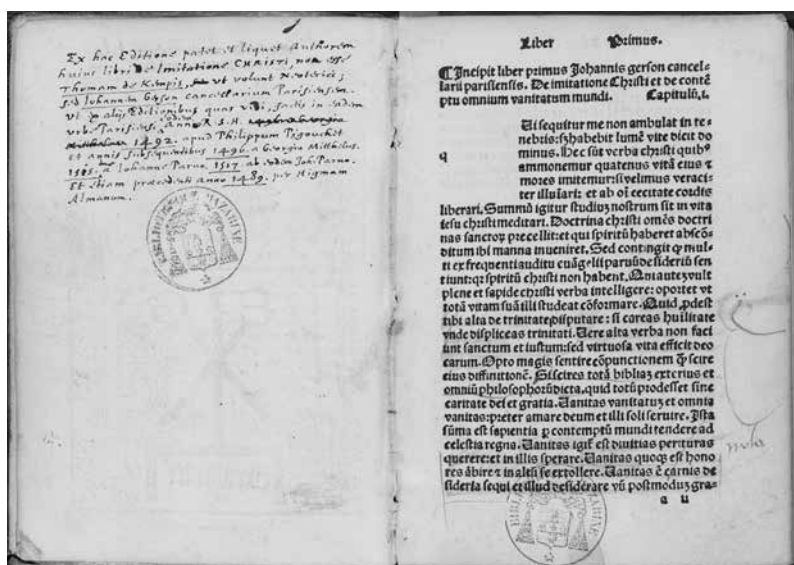 Ex hac Editione patet et liquet Authorem
huius libri de Imitatione CHRISTI, non esse
Thomam de Kempis, ut volunt Neoterici;
sed Iohannem Gerson cancellarium Parisiensem.
ut ex alijs Editionibus quas vidi, factis in eadem
urbe Parisiensi, eodem Anno R. S. H.
1492. apud Philippum Pigouchet
et annis subsequentibus 1496. a Georgio Mitthelus.
1505. a Iohanne Paruo, 1517. ab eodem Joh. Paruo.
Et etiam præcedenti anno 1489. per Higman
Almanum.
BIBLIOTHECÆ MAZARINÆ
Liber Primus.
¶ Incipit liber primus Johannis gerson cancel⸗
larii parisiensis. De imitatione Christi et de contē
ptu omnium vanitatum mundi. Capitulū.i.
q
Ui sequitur me non ambulat in te⸗
nebris:sꝫ habebit lumē vite dicit do
minus. Hec sūt verba christi quibꝰ
ammonemur quatenus vitā eius ⁊
mores imitemur:si velimus veraci⸗
ter illuīari: et ab oī cecitate cordis
liberari. Summū igitur studiuꝫ nostrum sit in vita
iesu christi meditari. Doctrina christi omēs doctri
nas sanctoꝝ precellit:et qui spiritū haberet abscō⸗
ditum ibi manna inueniret. Sed contingit ꝙ mul⸗
ti ex frequenti auditu euāgelii paruū desideriū sen
tiunt:qꝛ spiritū christi non habent. Qui auteꝫ vult
plene et sapide christi verba intelligere: oportet vt
totā vitam suā illi studeat cōformare. Quid ꝓdest
tibi alta de trinitate disputare: si careas huīlitate
vnde displiceas trinitati. Uere alta verba non faci
unt sanctum et iustum:sed virtuosa vita efficit deo
carum. Opto magis sentire cōpunctionem ꝙ̄ scire
eius diffinitionē. Si scires totā bibliaꝫ exterius et
omniū philosophorū dicta, quid totū prodesset sine
caritate dei et gratia. Uanitas vanitatuꝫ et omnia
vanitas:preter amare deum et illi soli seruire. Ista
sūma est sapientia ꝑ contemptū mundi tendere ad
celestia regna. Uanitas igiť est diuitias perituras
querere:et in illis sperare. Uanitas quoqꝫ est hono
res ābire ⁊ in altū se extollere. Uanitas ē carnis de
sideria sequi et illud desiderare vn̄ postmoduꝫ gra⸗
a ii
BIBLIOTHECÆ MAZARINÆ